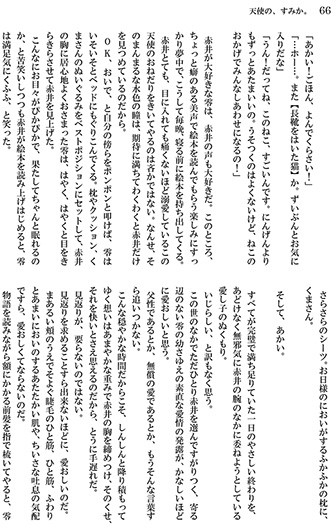 66　天使の、すみか。
「あかい！ごほん、よんでくらさい！」
「…ホー…。また【長靴をはいた猫】か。ずいぶんとお気に
入りだな」
「うん！だってね、このねこ、すごいんです。にんげんより
もずっとあたまいいの。うそつくのはよくないけど、ねこの
おかげでみんなしあわせになるの！」
赤井が大好きな零は、赤井の声も大好きだ。このところ、
ちょっと癖のある美声で絵本を読んでもらう楽しみにすっ
かり夢中でこうして毎晩、寝る前に絵本を持ち出してくる。
天使のおねだりをきいてやるのは吝かではない。なんせ、そ
のまんまるな水色の瞳は、期待に満ちてわくわくと赤井だけ
を見つめているのだから。
ＯＫ、おいで、と自分の傍らをポンポンと叩けば、零は
いそいそとベッドにもぐりこんでくる。枕やクッション、く
まさんのぬいぐるみをベストポジションにセットして、赤井
の胸に居心地よくおさまった零は、はやく、はやくと目をき
らきらさせて赤井を見上げた。
こんなにお目々がぴかぴかで、果たしてちゃんと眠れるの
か、と苦笑いしつつも赤井が絵本を読み上げはじめると、零
は満足気にくふふ、と笑った。
さらさらのシーツ。お日様のにおいがするふかふかの枕に、
くまさん。
そして、あかい。
すべてが完璧で満ち足りていた一日のやさしい終わりを、
あどけなく無邪気に赤井の腕のなかに委ねようとしている
愛し子のぬくもり。
いじらしい、と訳もなく思う。
この世のなかでただひとり赤井を選んですがりつく、寄る
辺のない零の幼さゆえの素直な愛情の発露が、かなしいほど
に愛おしいと思う。
父性であるとか、無償の愛であるとか、もうそんな言葉す
ら追いつかない。
こんな穏やかな時間だからこそ、しんしんと降り積もって
ゆく想いはあまやかな重みで赤井の胸を締めつけ、そのくせ、
それを快いとさえ思えるのだから、とうに手遅れだ。
見返りが、要らないのではない。
見返りを求めることすら出来ないほどに、愛おしいのだ。
まあるい頬のうえでそよぐ睫毛のひと筋、ひと筋、ふわり
とあまいにおいのするあたたかい肌や、ちいさな吐息の気配
ですら、愛おしくてならないのだ。
物語を読みながら額にかかる前髪を指で梳いてやると、零